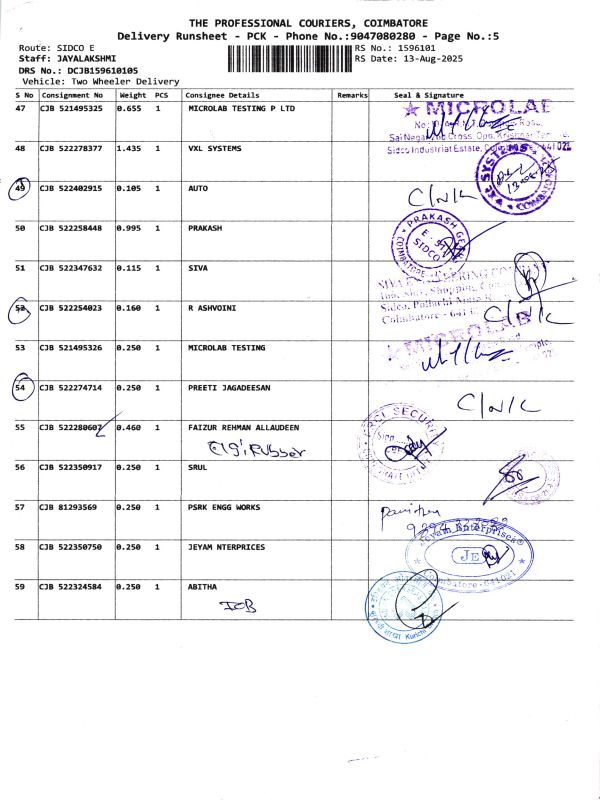 THE PROFESSIONAL COURIERS, COIMBATORE
Delivery Runsheet - PCK - Phone No.:9047080280 - Page No.:5
Route: SIDCO E RS No.: 1596101
Staff: JAYALAKSHMI RS Date: 13-Aug-2025
DRS No.: DCJB159610105
Vehicle: Two Wheeler Delivery
S No Consignment No Weight PCS Consignee Details Remarks Seal & Signature
47 CJB 521495325 0.655 1 MICROLAB TESTING P LTD
MICROLAB
Sidco Industrial Estate, 641 021
48 CJB 522278377 1.435 1 VXL SYSTEMS
SYSTEMS
COIMBATORE
49 CJB 522402915 0.105 1 AUTO
C/N/L
50 CJB 522258448 0.995 1 PRAKASH
PRAKASH
SIDCO
COIMBATORE
51 CJB 522347632 0.115 1 SIVA
SIVA
Coimbatore - 641
52 CJB 522254023 0.160 1 R ASHVOINI
C/N/L
53 CJB 521495326 0.250 1 MICROLAB TESTING
MICROLAB
54 CJB 522274714 0.250 1 PREETI JAGADEESAN
C/N/L
55 CJB 522280607 0.460 1 FAIZUR REHMAN ALLAUDEEN
Elgi Rubber
SECURITY
56 CJB 522350917 0.250 1 SRUL
57 CJB 81293569 0.250 1 PSRK ENGG WORKS
58 CJB 522350750 0.250 1 JEYAM NTERPRICES
Jeyam Enterprises
JE
Coimbatore-641021
59 CJB 522324584 0.250 1 ABITHA
IOB